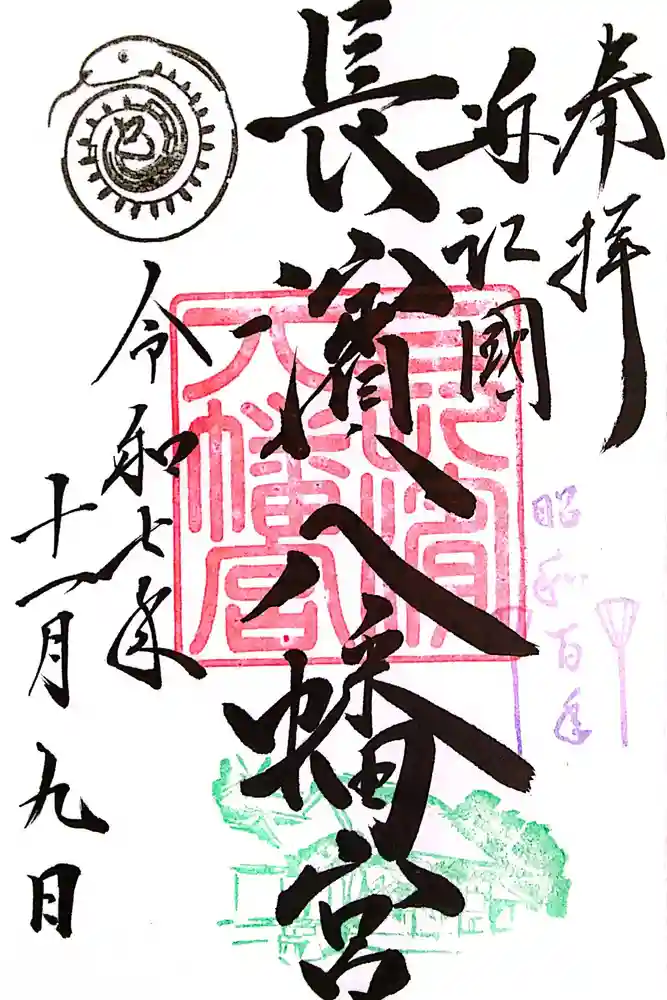 奉拝
近江國
長濱八幡宮
長濱
八幡宮
昭和百年
巳
令和七年
十一月九日